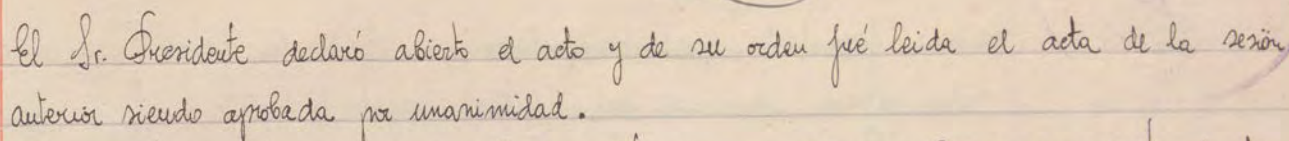 El Sr. Presidente declaró abierto el acto y de su orden fué leida el acta de la sesión
anterior siendo aprobada por unanimidad.